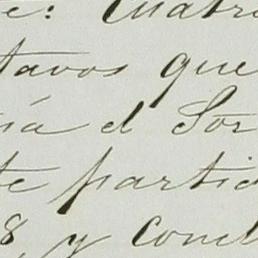 e: Cuatro
tavos que
ná el Sor
te partid
8, y concl